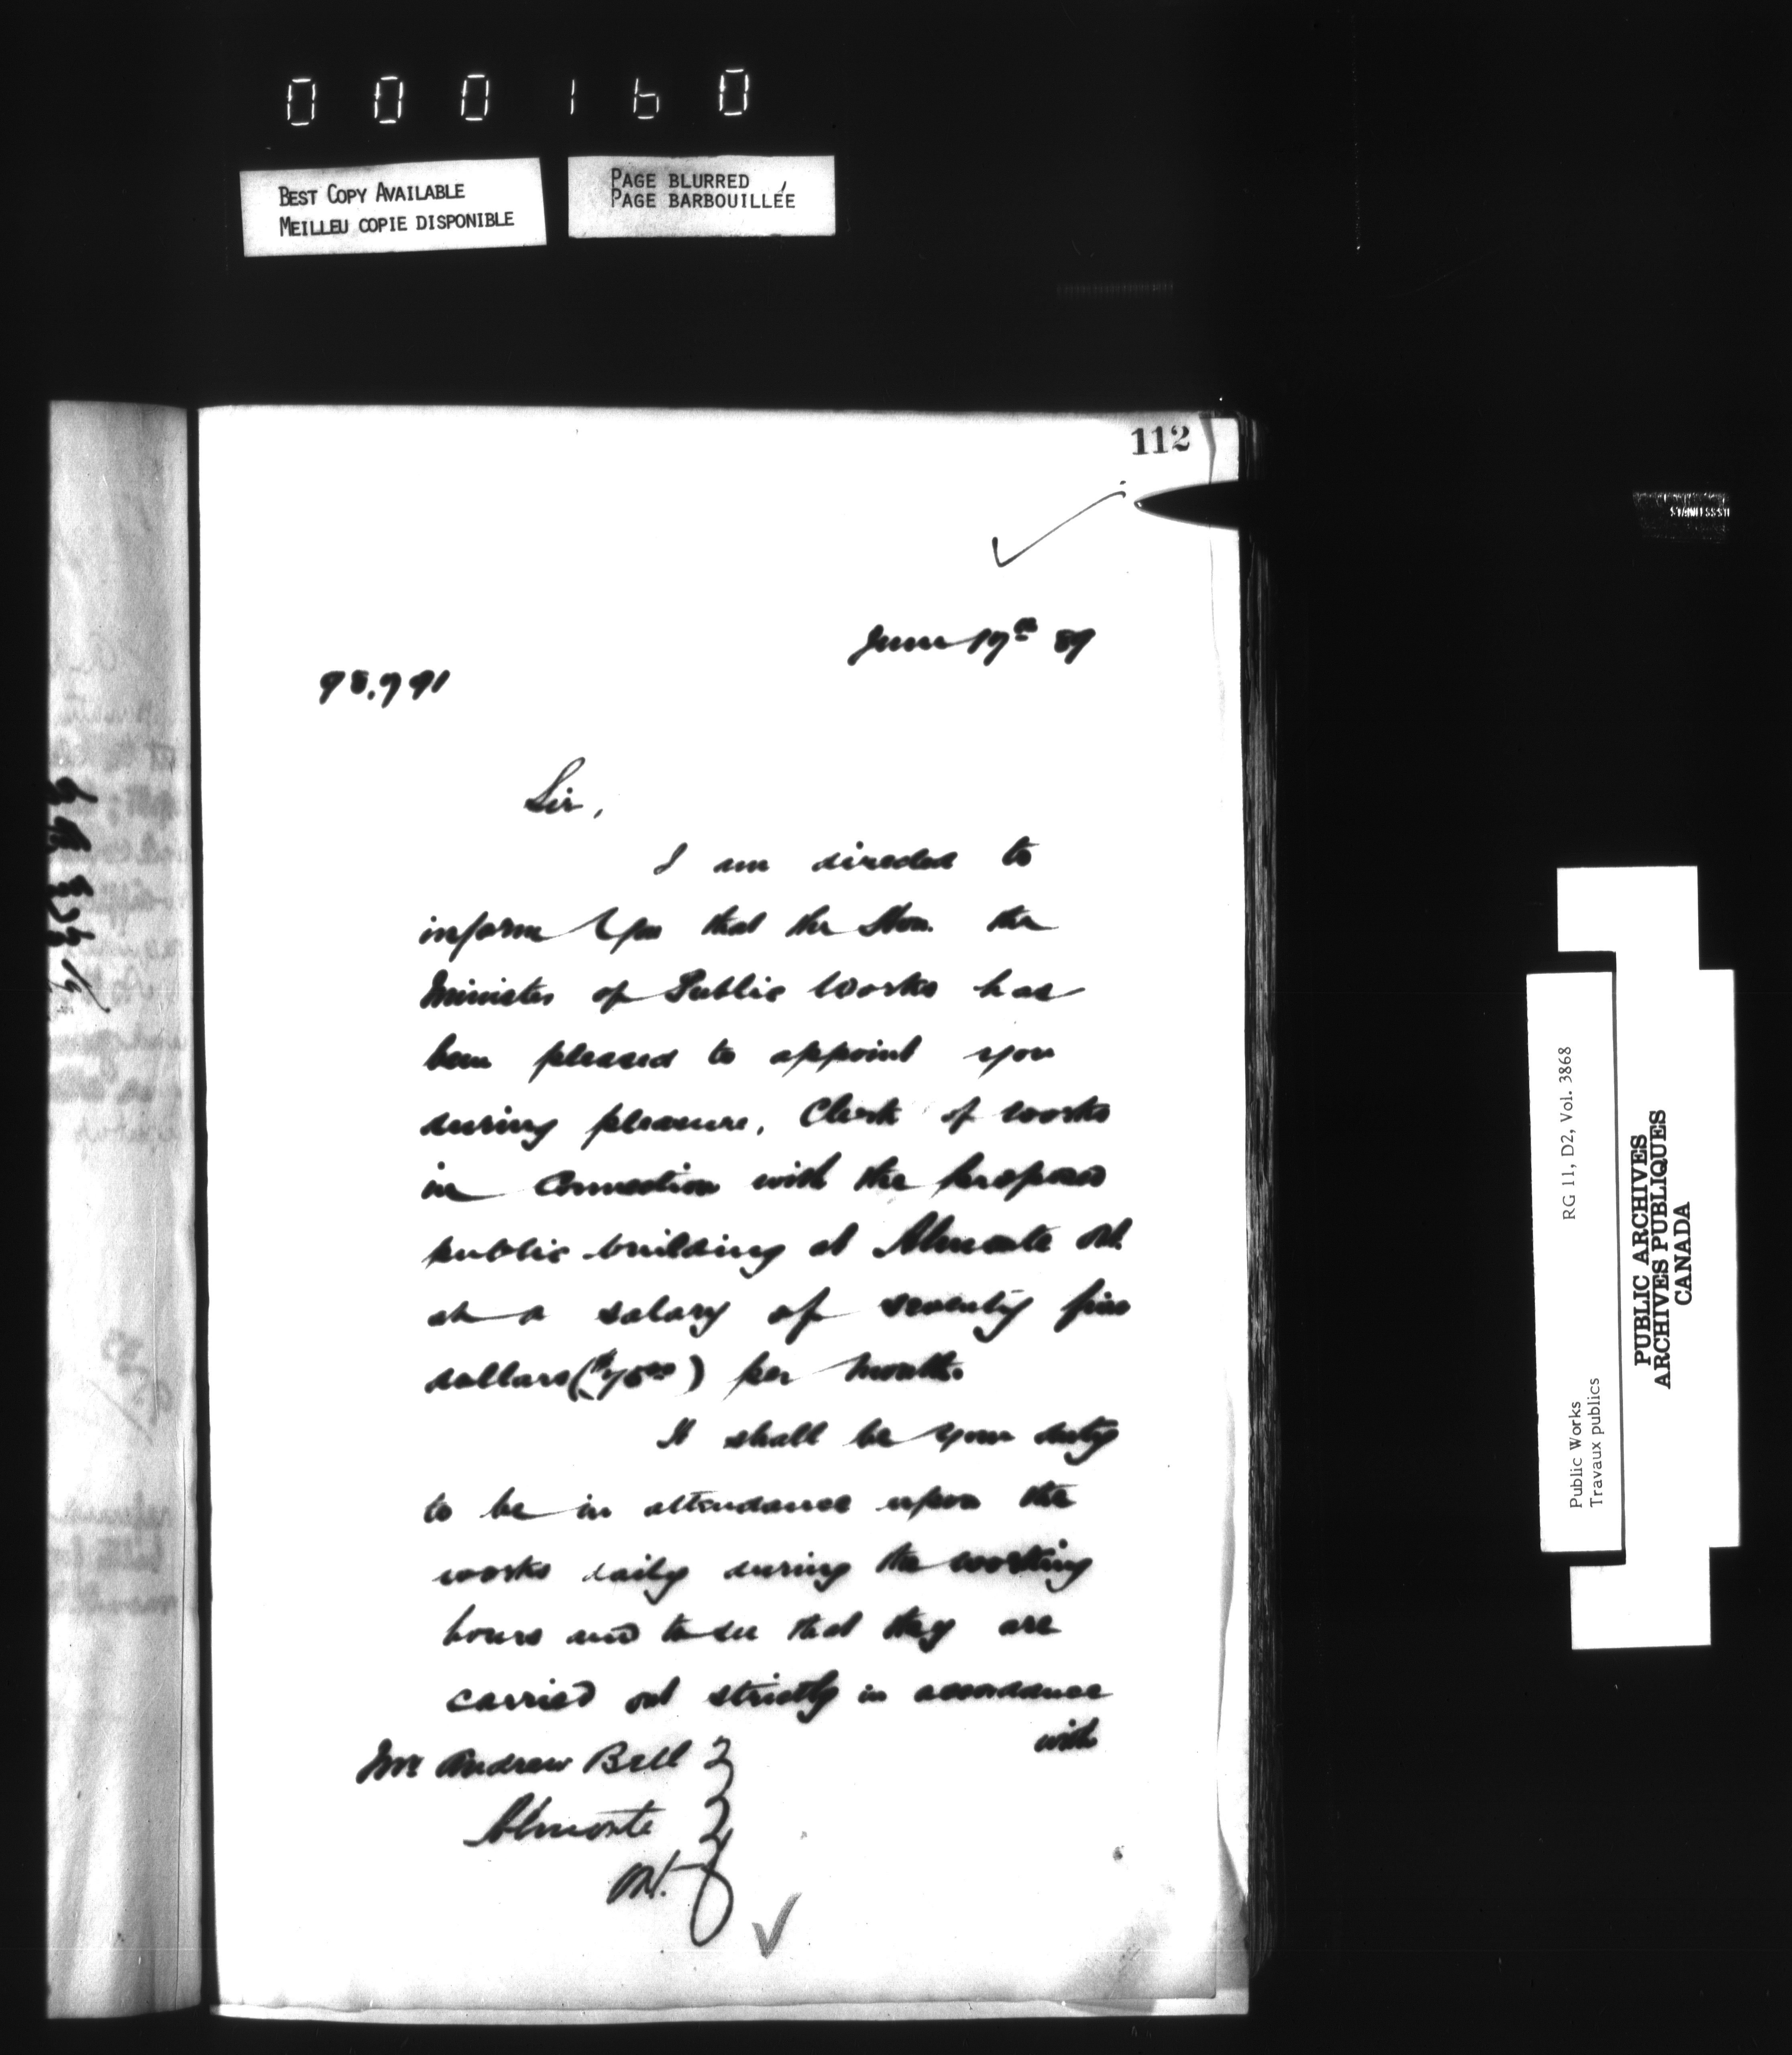 000160
BEST COPY AVAILABLE
MEILLEU COPIE DISPONIBLE
PAGE BLURRED
PAGE BARBOUILLÉE
112
June 17th 89
98.791
Sir,
I am directed to
inform you that the Hon. the
Minister of Public Works has
been pleased to appoint you
during pleasure, Clerk of works
in connection with the proposed
public building at Almonte Ont.
at a salary of seventy five
dollars ($75.00) per month.
It shall be your duty
to be in attendance upon the
works daily during the working
hours and to see that they are
carried out strictly in accordance
with
Mr Andrew Bell
Almonte
Ont.
RG 11, D2, Vol. 3868
Public Works
Travaux publics
PUBLIC ARCHIVES
ARCHIVES PUBLIQUES
CANADA